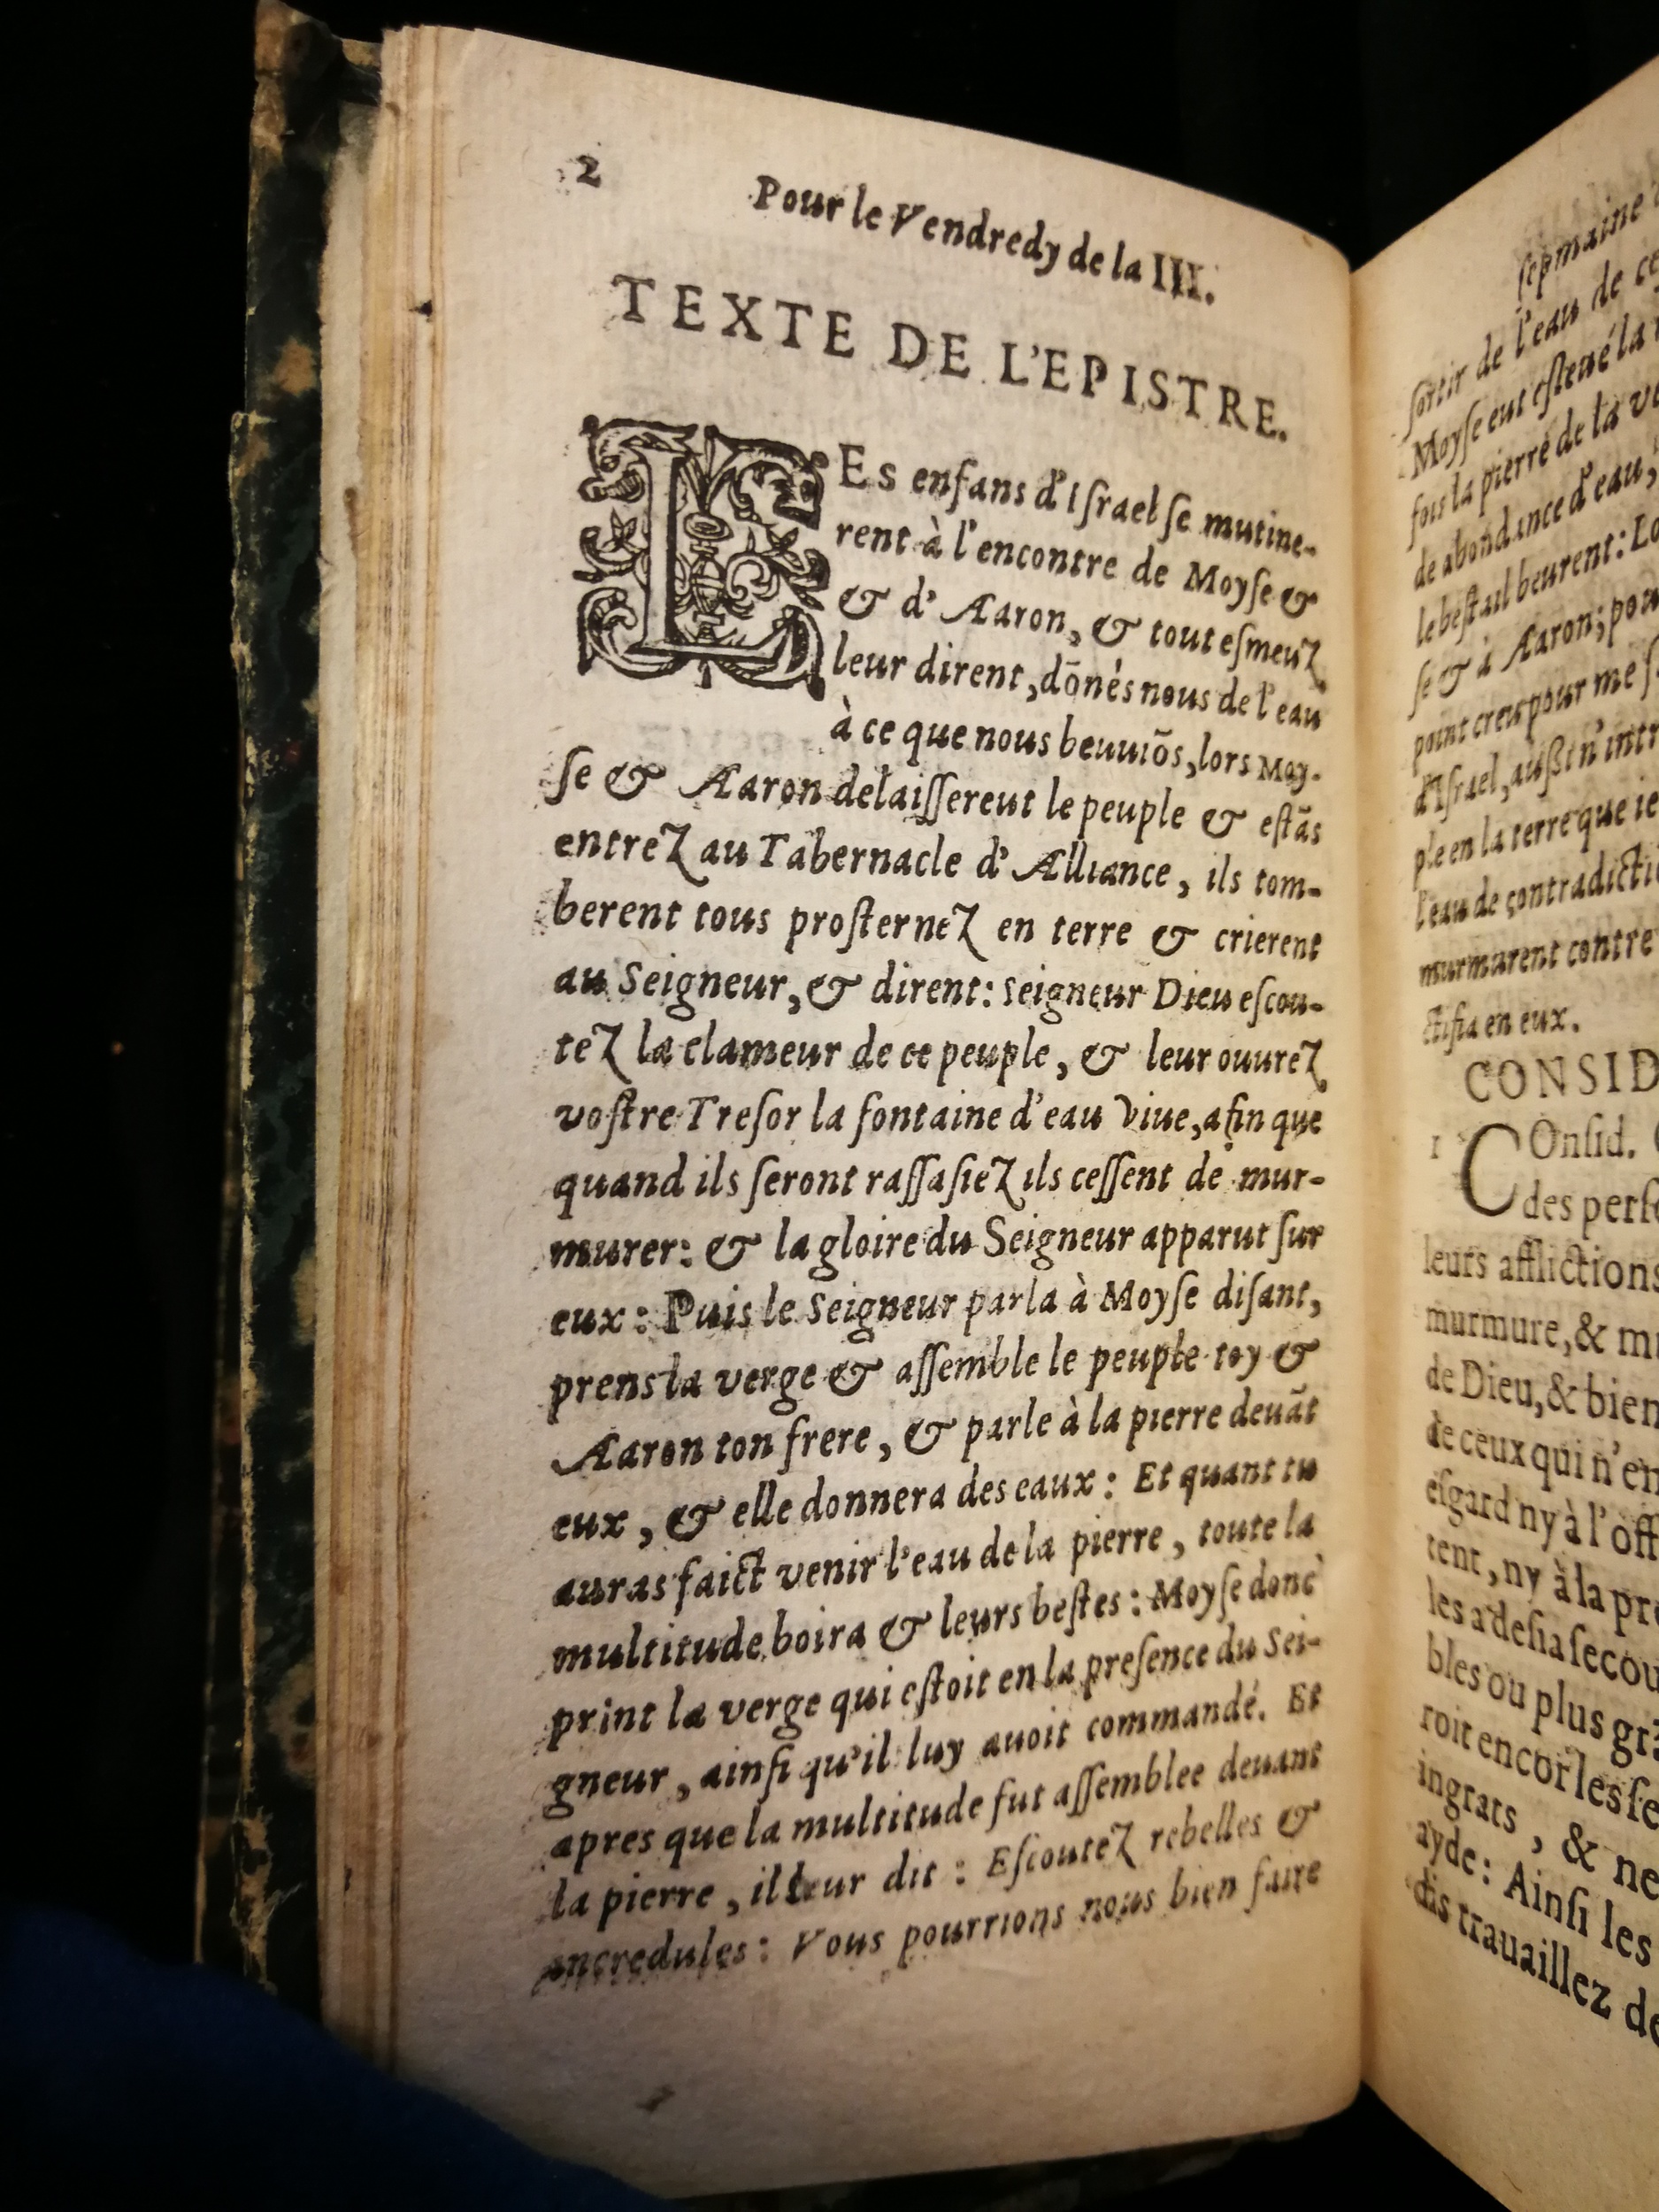 2
Pour le Vendredy de la III.
TEXTE DE L'EPISTRE.
LEs enfans d'Iſrael ſe mutine-
rent à l'encontre de Moyſe &
& d' Aaron, & tout eſmeuz
leur dirent, dōnés nous de l'eau
à ce que nous beuuiōs, lors Moy-
ſe & Aaron delaiſſereut le peuple & eſtās
entrez au Tabernacle d' Alliance, ils tom-
berent tous proſternez en terre & crierent
au Seigneur, & dirent: Seigneur Dieu eſcou-
tez la clameur de ce peuple, & leur ouurez
voſtre Treſor la fontaine d'eau viue, afin que
quand ils ſeront raſſaſiez ils ceſſent de mur-
murer: & la gloire du Seigneur apparut ſur
eux: Puis le Seigneur parla à Moyſe diſant,
prens la verge & aſſemble le peuple toy &
Aaron ton frere, & parle à la pierre deuāt
eux, & elle donnera des eaux: Et quant tu
auras faict venir l'eau de la pierre, toute la
multitude boira & leurs beſtes: Moyſe donc
print la verge qui eſtoit en la preſence du Sei-
gneur, ainſi qu'il luy auoit commandé. Et
apres que la multitude fut aſſemblee deuant
la pierre, il leur dit: Eſcoutez rebelles &
incredules: Vous pourrions nous bien faire
ſepmaine
ſortir de l'eau de ce
Moyſe eut eſleué la
fois la pierre de la
de abondance d'eau,
le beſtail beurent:
ſe & à Aaron; pou
point creu pour me
d'Iſrael, auſſi n'intr
ple en la terre que ie
l'eau de contradicti
murmurent contre
ctifia en eux.
CONSID
1 COnſid.
des perſ
leurs afflictions
murmure, & mu
de Dieu, & bien
de ceux qui n'en
eſgard ny à l'off
tent, ny à la pr
les a deſia ſecou
bles ou plus grā
roit encor les ſe
ingrats, & ne
ayde: Ainſi les
dis trauaillez de